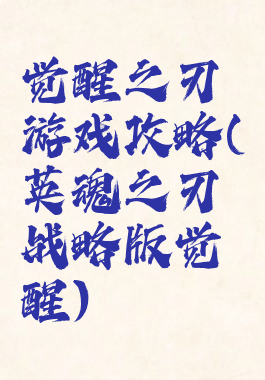 觉醒之刃
游戏攻略(
英魂之刃
战略版觉
醒)